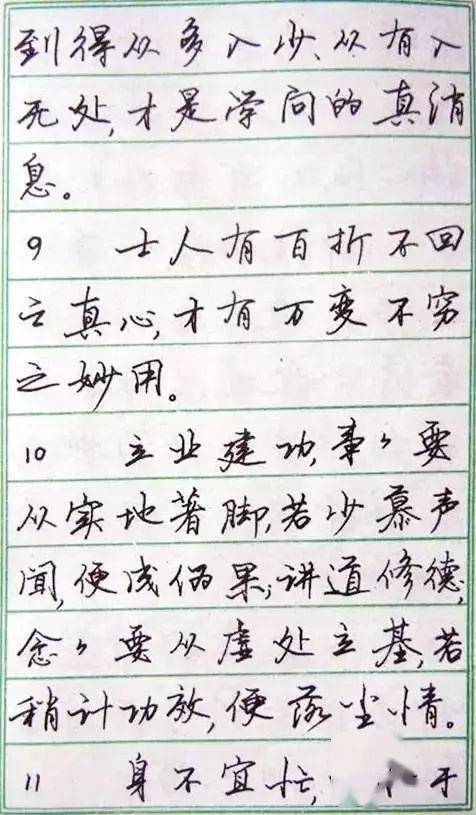 到得从多入少、从有入
死处，才是学问的真消
息。
9 士人有百折不回
之真心，才有万变不穷
之妙用。
10 立业建功，事々要
从实地着脚，若少慕声
闻，便成伪果；讲道修德，
念々要从虚处立基，若
稍计功效，便落尘情。
11 身不宜忙，于